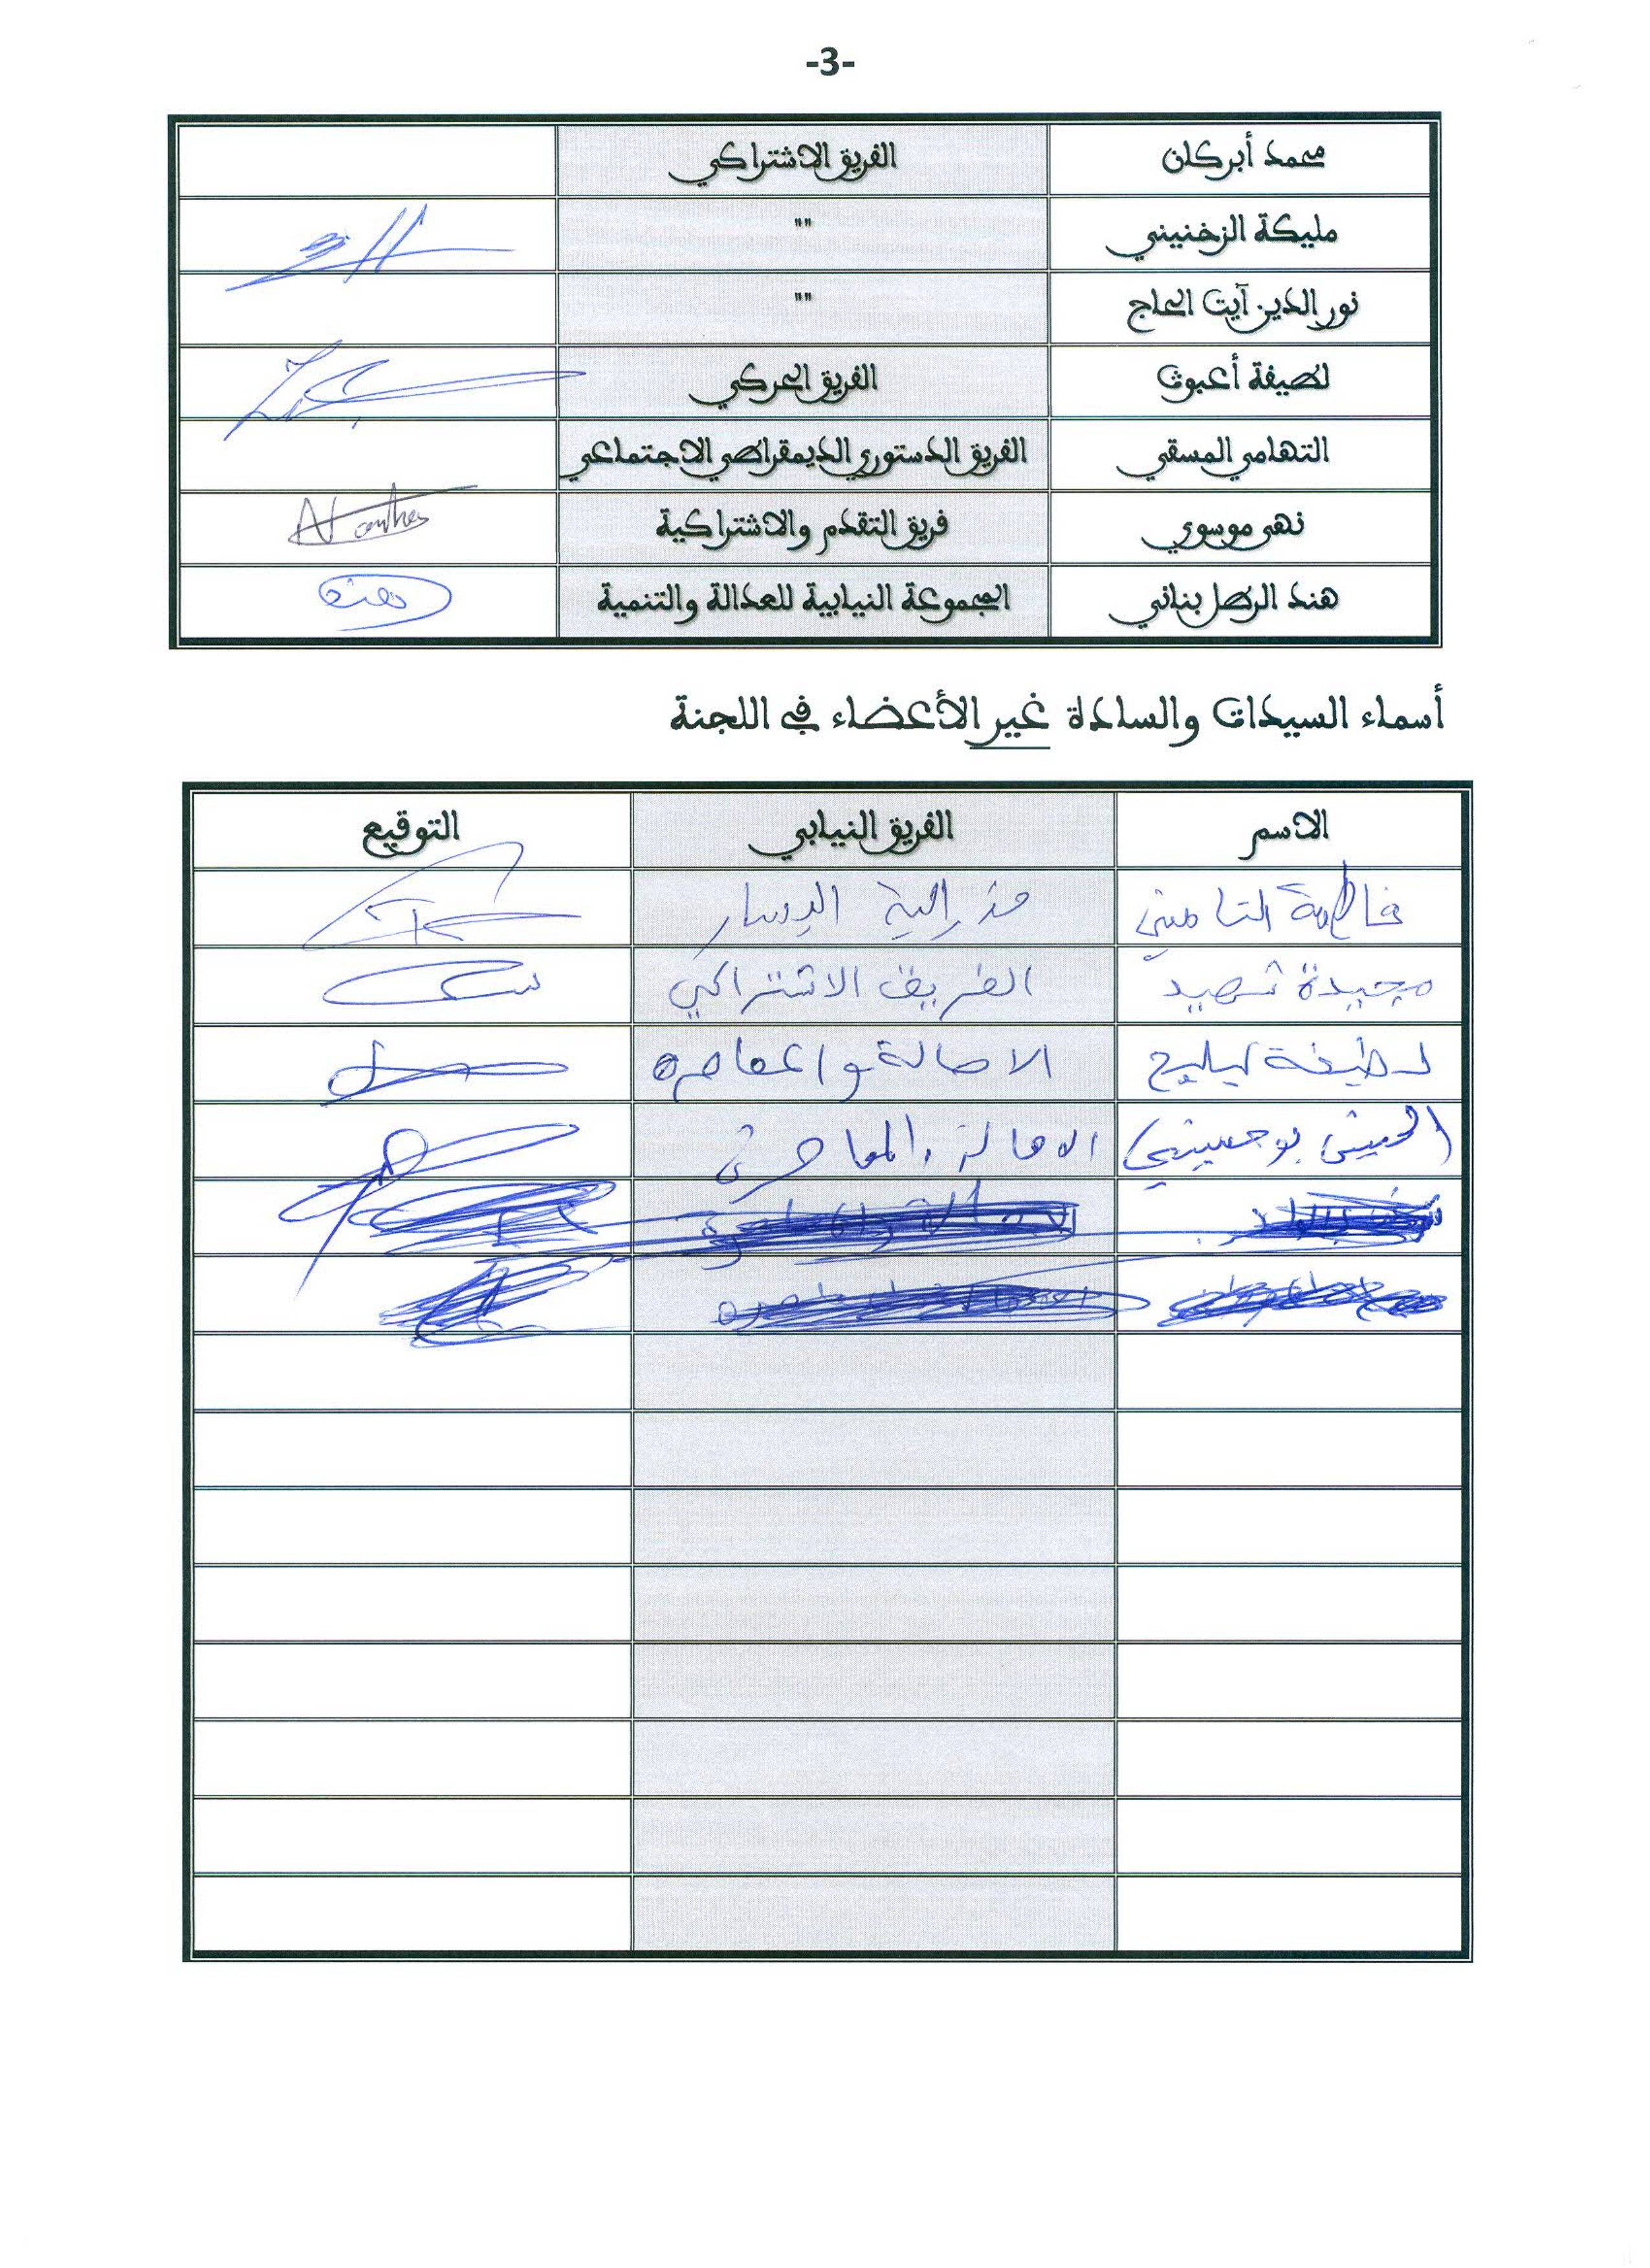 -3-
محمد أبركان الفريق الاشتراكي
مليكة الزخنيني ""
نور الدين آيت الحاج ""
لطيفة أعبوت الفريق الحركي
التهامي المسقي الفريق الدستوري الديمقراطي الاجتماعي
نهى موسوي فريق التقدم والاشتراكية
هند الرطل بناني المجموعة النيابية للعدالة والتنمية هند
أسماء السيدات والسادة غير الأعضاء في اللجنة
الاسم الفريق النيابي التوقيع
فاطمة التامني فدرالية اليسار
مجيدة شهيد الفريق الاشتراكي
لطيفة ليليح الاصالة والمعاصرة
الاصالة والمعاصرة